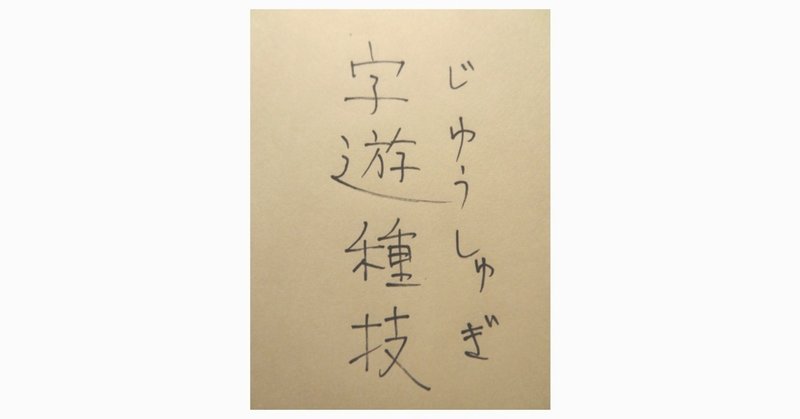 じゆうしゅぎ
字遊種技